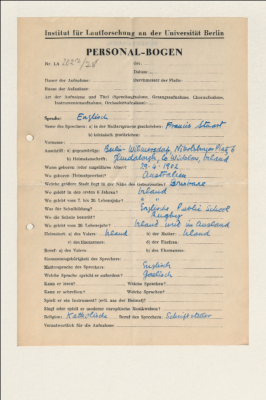 Institut für Lautforschung an der Universität Berlin
PERSONAL-BOGEN
Nr. LA Ort:
Datum:
Dauer der Aufnahme: Durchmesser der Platte:
Raum der Aufnahme:
Art der Aufnahme und Titel (Sprachaufnahme, Gesangsaufnahme, Choraufnahme,
Instrumentenaufnahme, Orchesteraufnahme):
Sprache: Englisch
Name des Sprechers: a) in der Muttersprache geschrieben: Francis Stuart
b) lateinisch geschrieben:
Vorname:
Anschrift: a) gegenwärtige: Berlin-Wilmersdorf, Nikolsburger Platz 6
b) Heimatanschrift: Co Wicklow, Irland
Wann geboren: 29.4.1902
Wo geboren (Heimatprovinz): Australien
Welche größere Stadt liegt in der Nähe des Geburtsortes: Brisbane
Wo gelebt in den ersten 6 Jahren? Irland
Wo gelebt vom 7. bis 20. Lebensjahr? " "
Was für Schulbildung? Public School
Wo die Schule besucht? Rugby
Wo gelebt vom 20. Lebensjahr? Irland und im Ausland
Heimatort: a) des Vaters: Irland b) der Mutter: Irland
Beruf: a) des Vaters:
Muttersprache des Sprechers: Englisch
Welche Sprache spricht er außerdem? Gaelisch
Kann er lesen? Welche Sprachen?
Kann er schreiben? Welche Sprachen?
Spielt er ein Instrument (evtl. aus der Heimat)?
Singt oder spielt er moderne europäische Musikweisen?
Religion: Katholische Beruf des Sprechers: Schriftsteller
Verantwortlich für die Aufnahme: